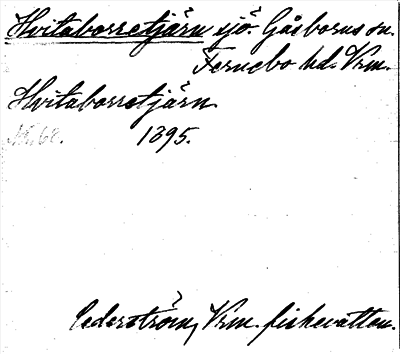 Hvitaborretjärn sjö. Gåsborns sn.
Fernebo hd. Vrm.
Hvitaborretjärn.
1895.
Cederström, Vrm. fiskevatten.